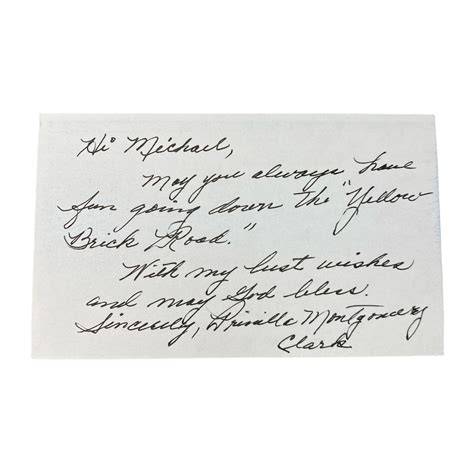 Hi Michael,
May you always have
fun going down the "Yellow
Brick Road."
With my best wishes
and may God bless.
Sincerely, Priscilla Montgomery
Clark